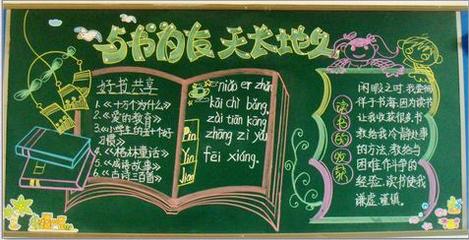 与书为友 天长地久
好书共享
1.《十万个为什么》
2.《爱的教育》
3.《小学生的五十个好
习惯》
4.《格林童话》
5.《成语故事》
6.《古诗三百首》
Pin
Yin
niǎo er zhǎn
kāi chì bǎng,
zài tiān kōng
zhōng zì yóu
fēi xiáng.
读书的收获
闲暇之时,我
伴于书海,因为读书
让我收获很多.书
教给我冷静处事
的方法,教给与
困难作斗争的
经验.读书使我
谦虚、谨慎.